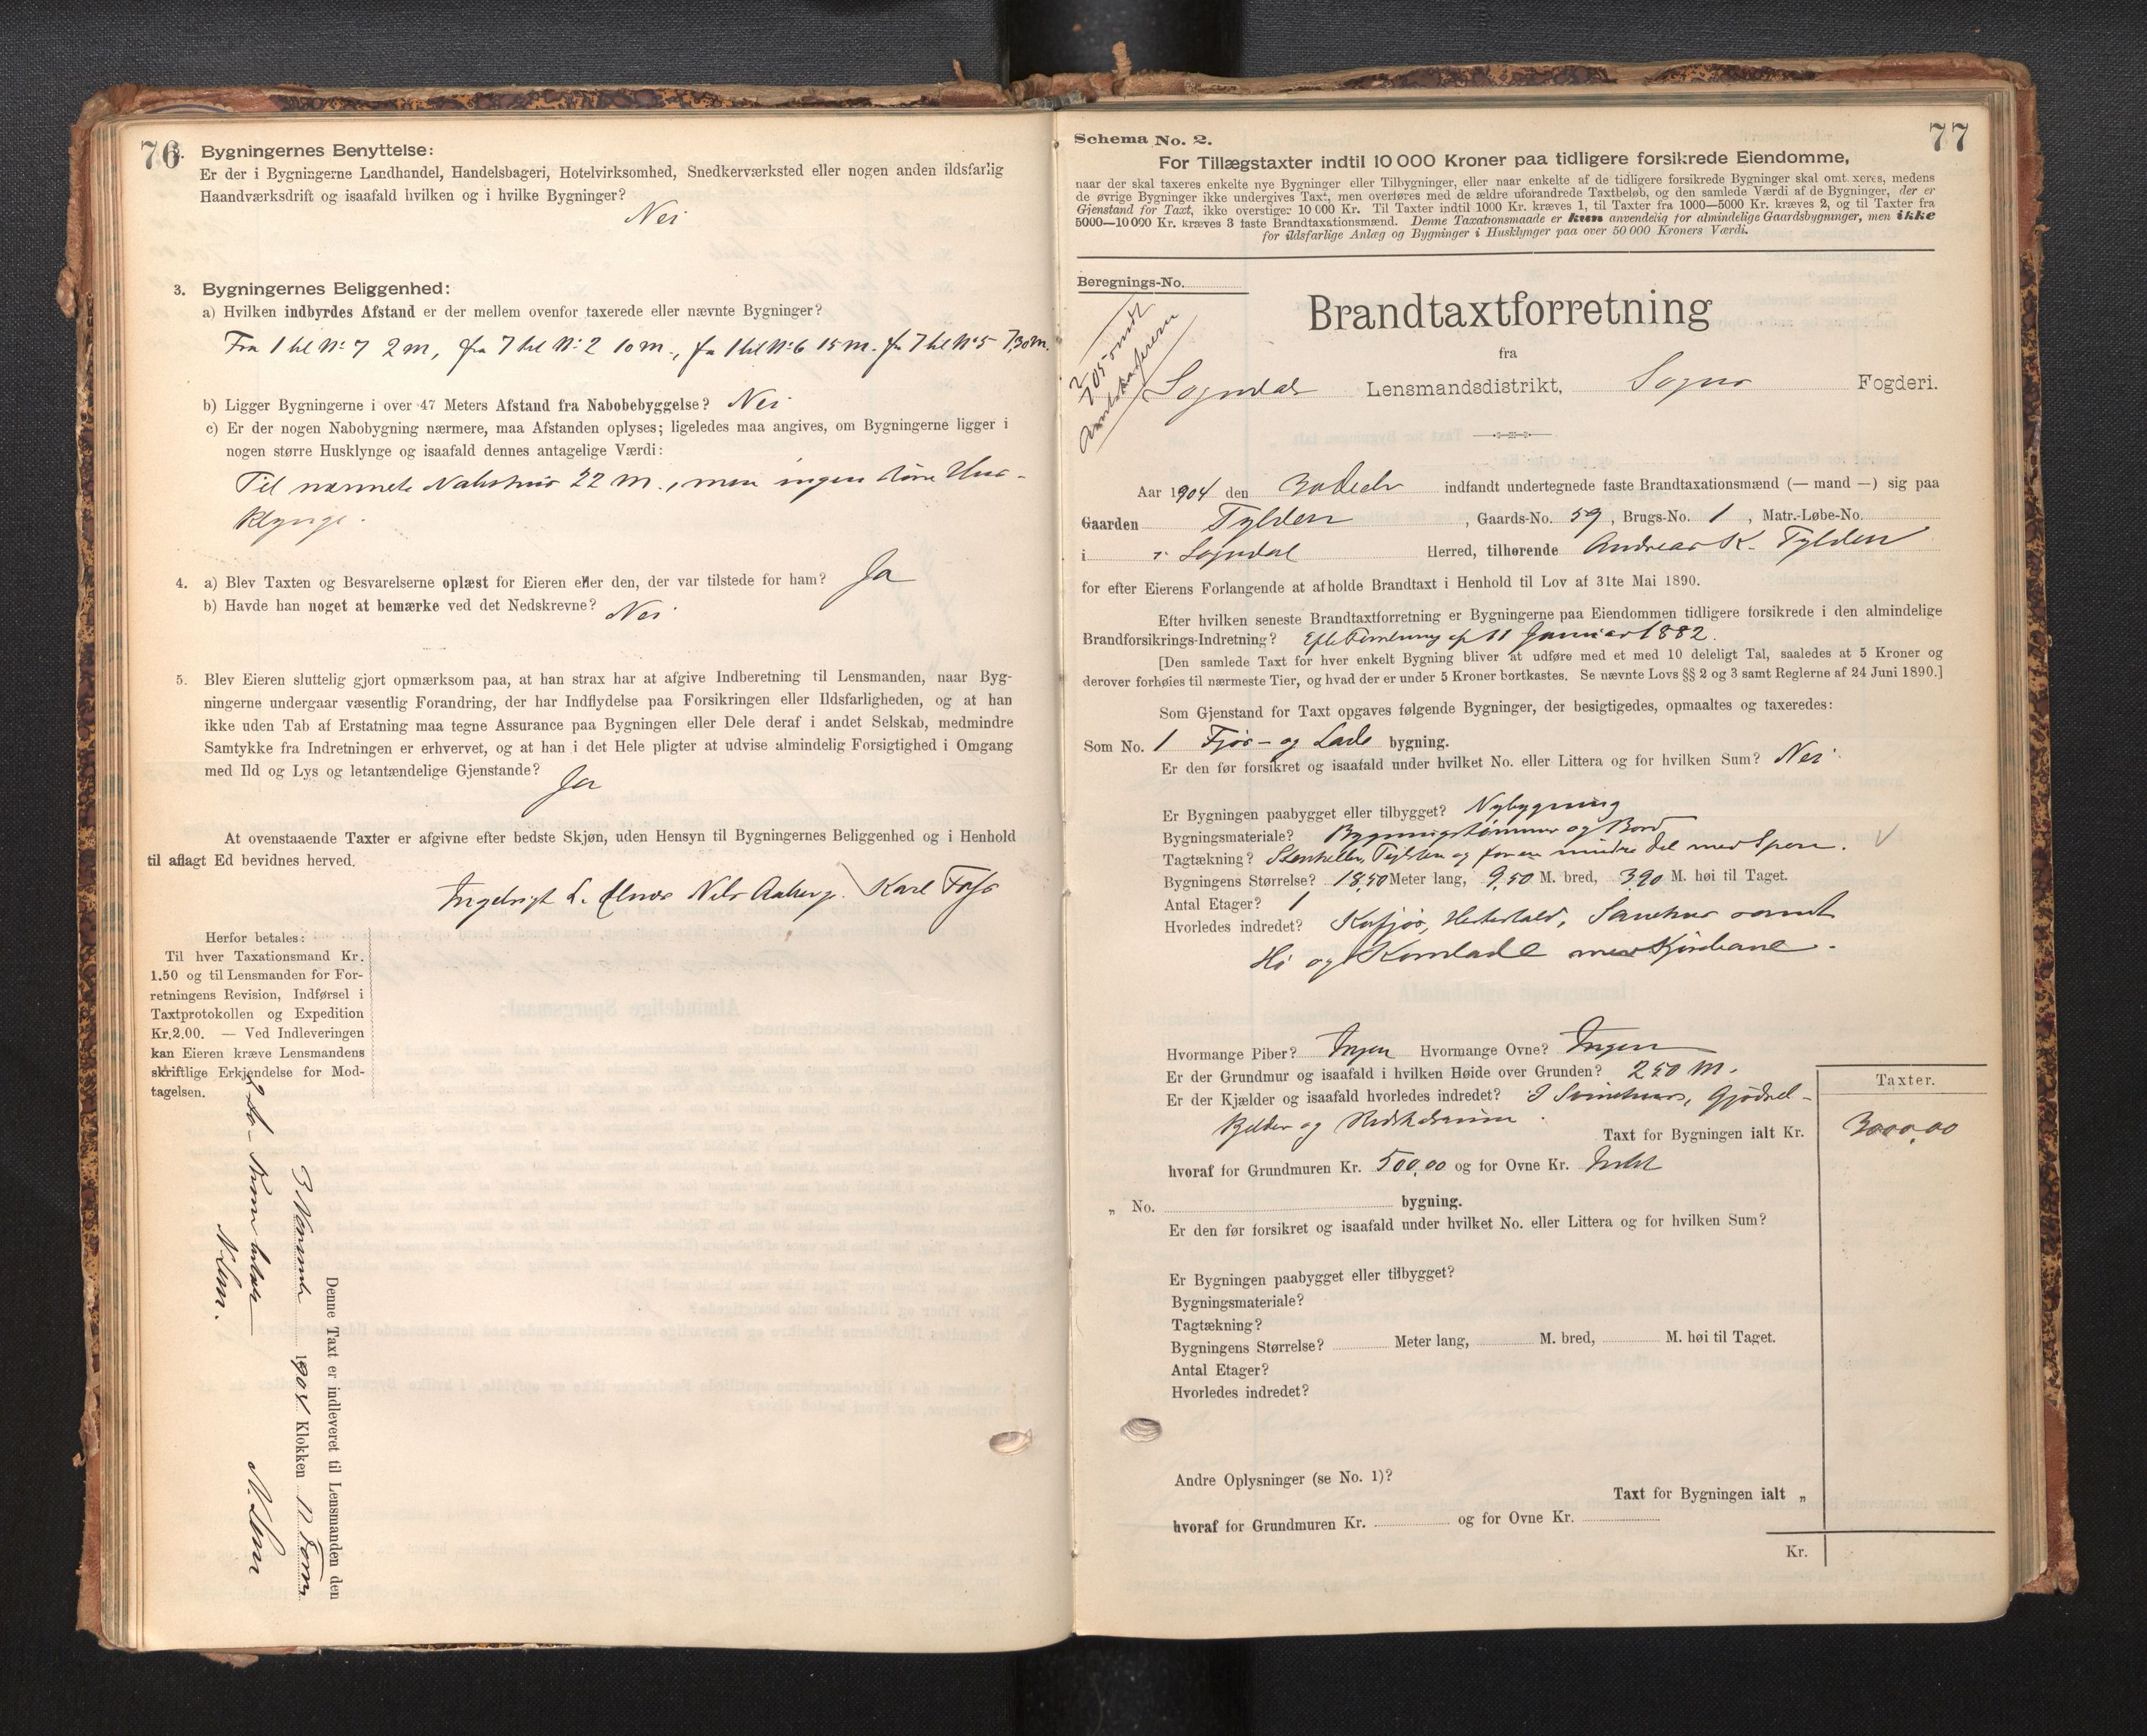 76
Bygningernes Benyttelse:
Er der i Bygningerne Landhandel, Handelsbageri, Hotelvirksomhed, Snedkerværksted eller nogen anden ildsfarlig
Haandværksdrift og isaafald hvilken og i hvilke Bygninger?
Nei
3. Bygningernes Beliggenhed:
a) Hvilken indbyrdes Afstand er der mellem ovenfor taxerede eller nævnte Bygninger?
Fra 1 til No 7 2 m, fra 7 til No 2 10 m., fra 1 til No 6 15 m. fra 7 til No 5 7,30 m.
b) Ligger Bygningerne i over 47 Meters Afstand fra Nabobebyggelse? Nei
c) Er der nogen Nabobygning nærmere, maa Afstanden oplyses; ligeledes maa angives, om Bygningerne ligger i
nogen større Husklynge og isaafald dennes antagelige Værdi:
Til nærmeste Nabohus 22 m., men ingen større Hus-
klynge.
4. a) Blev Taxten og Besvarelserne oplæst for Eieren eller den, der var tilstede for ham? Ja
b) Havde han noget at bemærke ved det Nedskrevne? Nei
5. Blev Eieren sluttelig gjort opmærksom paa, at han strax har at afgive Indberetning til Lensmanden, naar Byg-
ningerne undergaar væsentlig Forandring, der har Indflydelse paa Forsikringen eller Ildsfarligheden, og at han
ikke uden Tab af Erstatning maa tegne Assurance paa Bygningen eller Dele deraf i andet Selskab, medmindre
Samtykke fra Indretningen er erhvervet, og at han i det Hele pligter at udvise almindelig Forsigtighed i Omgang
med Ild og Lys og letantændelige Gjenstande?
Ja
At ovenstaaende Taxter er afgivne efter bedste Skjøn, uden Hensyn til Bygningernes Beliggenhed og i Henhold
til aflagt Ed bevidnes herved.
Ingebrigt L. Nils Aaberge. Karl
Herfor betales:
Til hver Taxationsmand Kr.
1.50 og til Lensmanden for For-
retningens Revision, Indførsel i
Taxtprotokollen og Expedition
Kr.2.00. — Ved Indleveringen
kan Eieren kræve Lensmandens
skriftlige Erkjendelse for Mod-
tagelsen.
Denne Taxt er indleveret til Lensmanden den
3 November 1904 Klokken 12 Form.
77
Schema No. 2.
For Tillægstaxter indtil 10 000 Kroner paa tidligere forsikrede Eiendomme,
naar der skal taxeres enkelte nye Bygninger eller Tilbygninger, eller naar enkelte af de tidligere forsikrede Bygninger skal omtaxeres, medens
de øvrige Bygninger ikke undergives Taxt, men overføres med de ældre uforandrede Taxtbeløb, og den samlede Værdi af de Bygninger, der er
Gjenstand for Taxt, ikke overstiger 10 000 Kr. Til Taxter indtil 1000 Kr. kræves 1, til Taxter fra 1000—5000 Kr. kræves 2, og til Taxter fra
5000—10 000 Kr. kræves 3 faste Brandtaxationsmænd. Denne Taxationsmaade er kun anvendelig for almindelige Gaardsbygninger, men ikke
for ildsfarlige Anlæg og Bygninger i Husklynger paa over 50 000 Kroners Værdi.
Beregnings-No.
Brandtaxtforretning
fra
Sogndals Lensmandsdistrikt, Sogns Fogderi.
Aar 1904 den indfandt undertegnede faste Brandtaxationsmænd (— mand —) sig paa
Gaarden Tylden, Gaards-No. 59, Brugs-No. 1, Matr.-Løbe-No.
i Sogndal Herred, tilhørende Andreas K. Tylden
for efter Eierens Forlangende at afholde Brandtaxt i Henhold til Lov af 31te Mai 1890.
Efter hvilken seneste Brandtaxtforretning er Bygningerne paa Eiendommen tidligere forsikrede i den almindelige
Brandforsikrings-Indretning? Efter Forretning af 11 Januar 1882.
[Den samlede Taxt for hver enkelt Bygning bliver at udføre med et med 10 deleligt Tal, saaledes at 5 Kroner og
derover forhøies til nærmeste Tier, og hvad der er under 5 Kroner bortkastes. Se nævnte Lovs §§ 2 og 3 samt Reglerne af 24 Juni 1890.]
Som Gjenstand for Taxt opgaves følgende Bygninger, der besigtigedes, opmaaltes og taxeredes:
Som No. 1 Fjøs- og Lade bygning.
Er den før forsikret og isaafald under hvilket No. eller Littera og for hvilken Sum? Nei
Er Bygningen paabygget eller tilbygget? Nybygning
Bygningsmateriale? Bygningstømmer og Bord
Tagtækning? Stenheller, Teglsten og for en mindre Del med Spon.
Bygningens Størrelse? 18,50 Meter lang, 9,50 M. bred, 3,90 M. høi til Taget.
Antal Etager? 1
Hvorledes indredet? Kufjøs, Hestestald, Sauehus samt
Hø og Kornlade med Kjørebane.
Hvormange Piber? Ingen Hvormange Ovne? Ingen
Er der Grundmur og isaafald i hvilken Høide over Grunden? 2,50 M.
Er der Kjælder og isaafald hvorledes indredet? I Svinehus, Gjødsel-
kjelder og Redskabsrum.
Taxter.
Taxt for Bygningen ialt Kr. 3000,00
hvoraf for Grundmuren Kr. 500,00 og for Ovne Kr. Intet
„ No. bygning.
Er den før forsikret og isaafald under hvilket No. eller Littera og for hvilken Sum?
Er Bygningen paabygget eller tilbygget?
Bygningsmateriale?
Tagtækning?
Bygningens Størrelse? Meter lang, M. bred, M. høi til Taget.
Antal Etager?
Hvorledes indredet?
Andre Oplysninger (se No. 1)?
Taxt for Bygningen ialt „
hvoraf for Grundmuren Kr. og for Ovne Kr.
Kr.